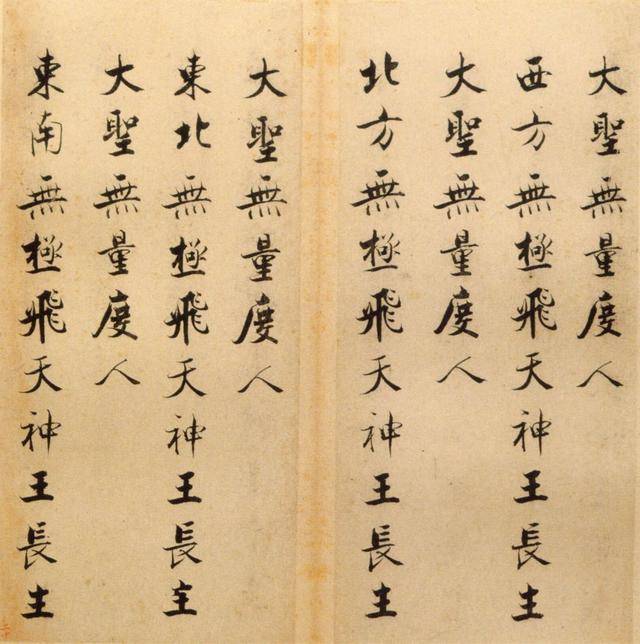 大聖無量度人
西方無極飛天神王長主
大聖無量度人
北方無極飛天神王長主
大聖無量度人
東北無極飛天神王長主
大聖無量度人
東南無極飛天神王長主